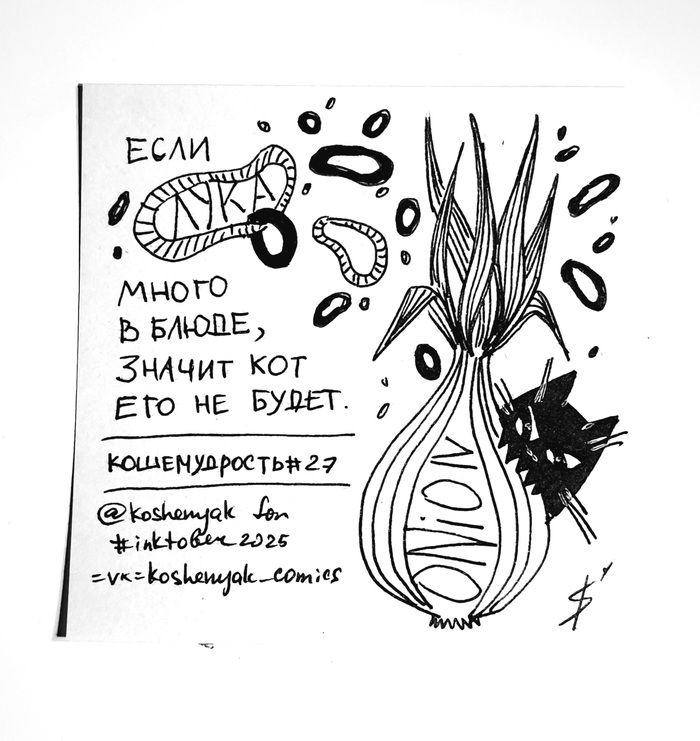 ЕСЛИ
ЛУКА
МНОГО
В БЛЮДЕ,
ЗНАЧИТ КОТ
ЕГО НЕ БУДЕТ.
КОШЕМУДРОСТЬ#27
@koshenyak for
#inktober2025
=vk=koshenyak_comics
ONiON